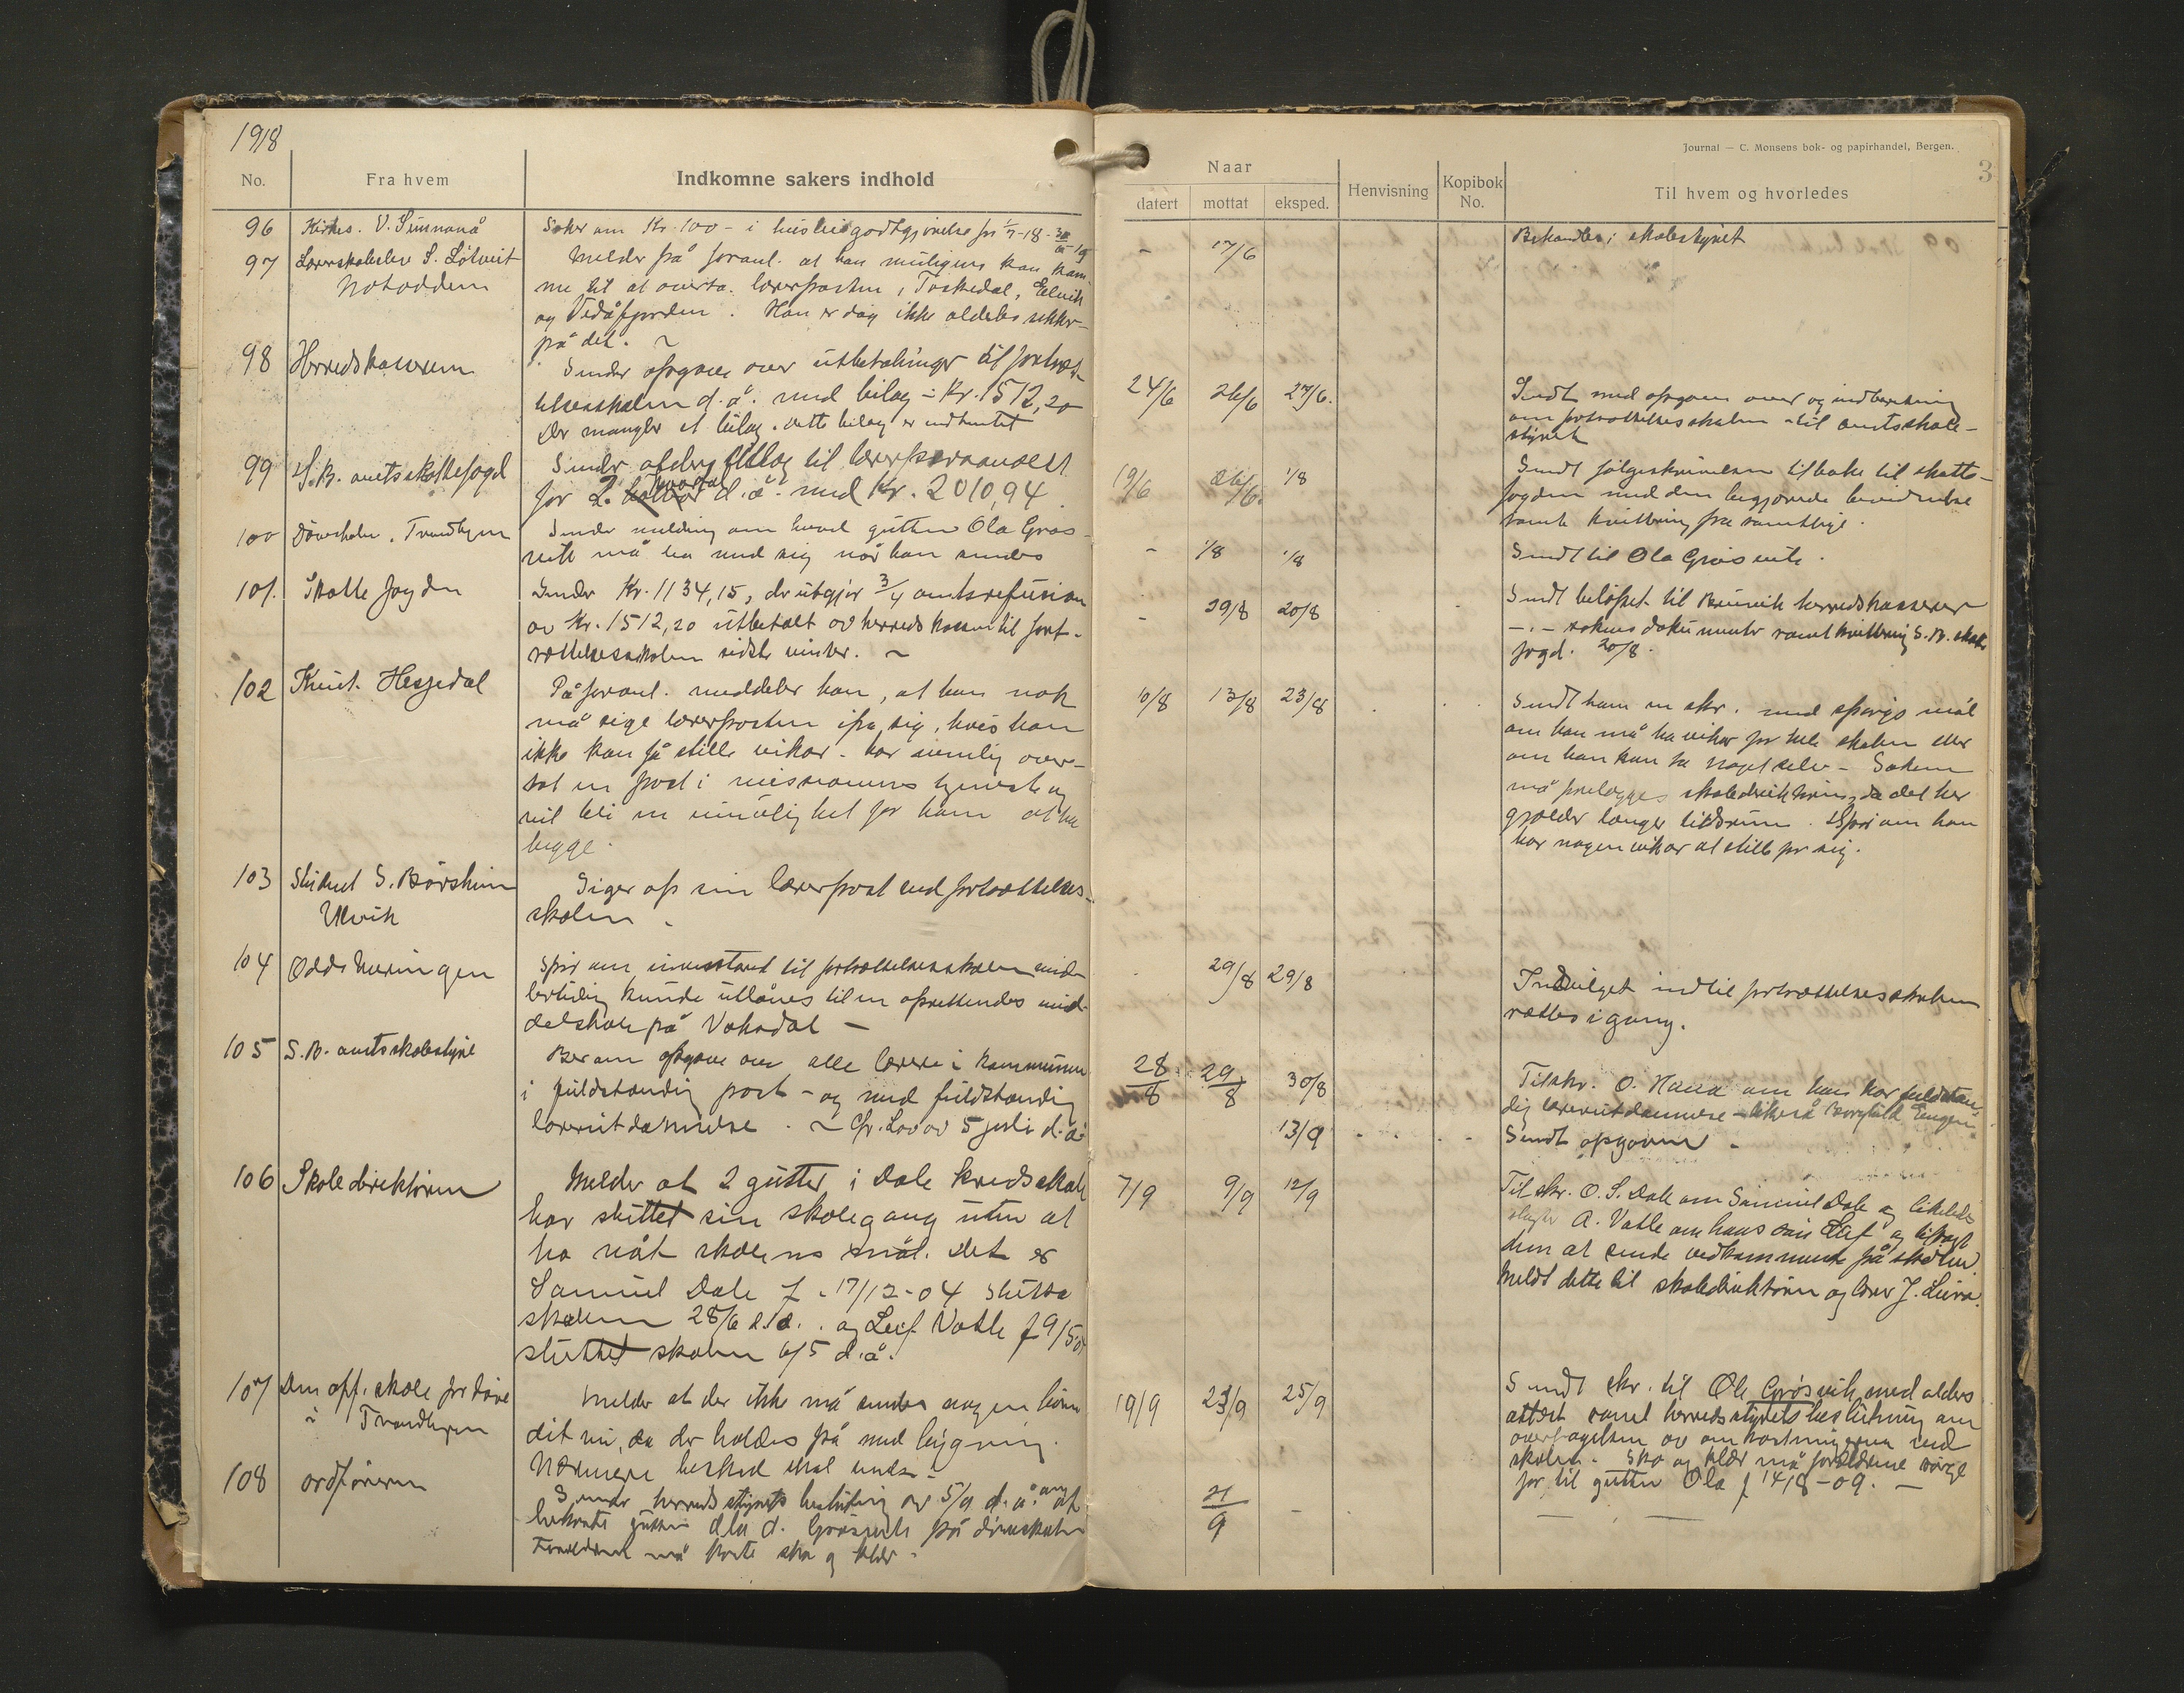 1918
No.
Fra hvem
Indkomne sakers indhold
96
Kirkes. V. Simmenå
Søker om Kr. 100 - i husleiegodtgjørelse for 1/7-18 -
97
Lærerskoleelev S. Løtveit
Notodden
Melder på foranl. at han muligens kan kom
me til at overta lærerposten i Toskedal, Eelvik
og Vedåfjorden. Han er dog ikke aldeles sikker
på det. ~
98
Herredskassereren
Sender opgave over utbetalinger til fortsæt-
telsesskolen d.å. med bilag - Kr. 1512,20
Der mangler et bilag. Dette bilag er indhentet
99
S.B. amtsskattefogd
Sender alderstillæg til lærerpersonalet
for 2. kvartal d.å. med Kr. 2010,94
100
Døveskolen, Trondhjem
Sender melding om hvad gutten Ola Gros-
vik må ha med sig når han sendes
101.
Skattefogden
Sender Kr. 1134,15, der utgjør 3/4 amtsrefusion
av Kr. 1512,20 utbetalt av herredskassen til fort-
sættelsesskolen sidste vinter. ~
102
Knut Hesjedal
På foranl. meddeler han, at han nok
må sige lærerposten ifra sig, hvis han
ikke kan få stille vikar - har nemlig over-
tat en post i missionens tjeneste og
vil bli en umulighet for ham at ha
begge.
103
Student S. Børsheim
Ulvik
Siger op sin lærerpost ved fortsættelses-
skolen -
104
Odds Næringen
Spør om inventaret til fortsættelsesskolen mid-
lertidig kunde utlånes til en oprettendes mid-
delskole på Vaksdal -
105
S.B. amtsskolestyre
Ber om opgave over alle lærere i kommunen
i fuldstændig post - og med fuldstændig
lærerutdannelse. ~ Cfr. Lov av 5 juli d.å.
106
Skoledirektøren
Melder at 2 gutter i Dale kredsskole
har sluttet sin skolegang uten at
ha nåt skolens mål. Det er
Samuel Dale f. 17/12-04 slutta
skolen 28/6 d.å. og Leif Vatle f 9/5 04
sluttet skolen 6/5 d.å.
107
Den off. skole for døve
i Trondhjem
Melder at der ikke må sendes nogen
dit nu, da der holdes på med bygning.
Nærmere besked skal sendes -
108
Ordføreren
Sender herredsstyrets beslutning av 5/9 d.å. om at
bekoste gutten Ola O. Grøsvik på døveskolen
Forældrene må koste sko og klær -
Journal — C. Monsens bok- og papirhandel, Bergen.
3
Naar
datert
mottat
eksped.
Henvisning
Kopibok
No.
Til hvem og hvorledes
-
17/6
Behandles i skolestyret
24/6
26/6
27/6.
Sendt med opgave over og indberetning
om fortsættelsesskolen - til amtsskole-
styret
19/6
26/6.
1/8
Sendt følgeskrivelsen tilbake til skatte-
fogden med den begjærede bevidnelse
samt kvittering fra samtlige.
-
1/8
1/8
Sendt til Ola Grøsvik.
-
19/8
20/8
Sendt beløpet til Bruvik herredskasserer
-.- sakens dokumenter samt kvittering S.B. skatte
fogd. 20/8.
10/8
13/8
23/8
Sendt ham en skr. med spørgsmål
om han må ha vikar for hele skolen eller
om han kan ta noget selv - Saken
må forelægges skoledirektøren, da det her
gjælder længer tidsrum. Spør om han
har nogen vikar at stille for sig.
29/8
29/8
Indvilget indtil fortsættelsesskolen
sættes igang.
28/8
29/8
30/8
Tilskr. O. Hana om han har fuldstæn-
dig lærerutdannelse - likeså
13/9
Sendt opgaven -
7/9
9/9
12/9
Tilskr. O. S. Dale om Samuel Dale og likeledes
A. Vatle om hans søn Leif og
dem at sende vedkommende på skolen.
Meldt dette til skoledirektøren og lærer J. Leira.
19/9
23/9
25/9
Sendt skr. til Ole Grøsvik med alders
attest samt herredsstyrets beslutning om
overtagelsen av omkostningerne ved
skolen. Sko og klær må forældrene sørge
for til gutten Ola f 14/8-09. -
21/9
-